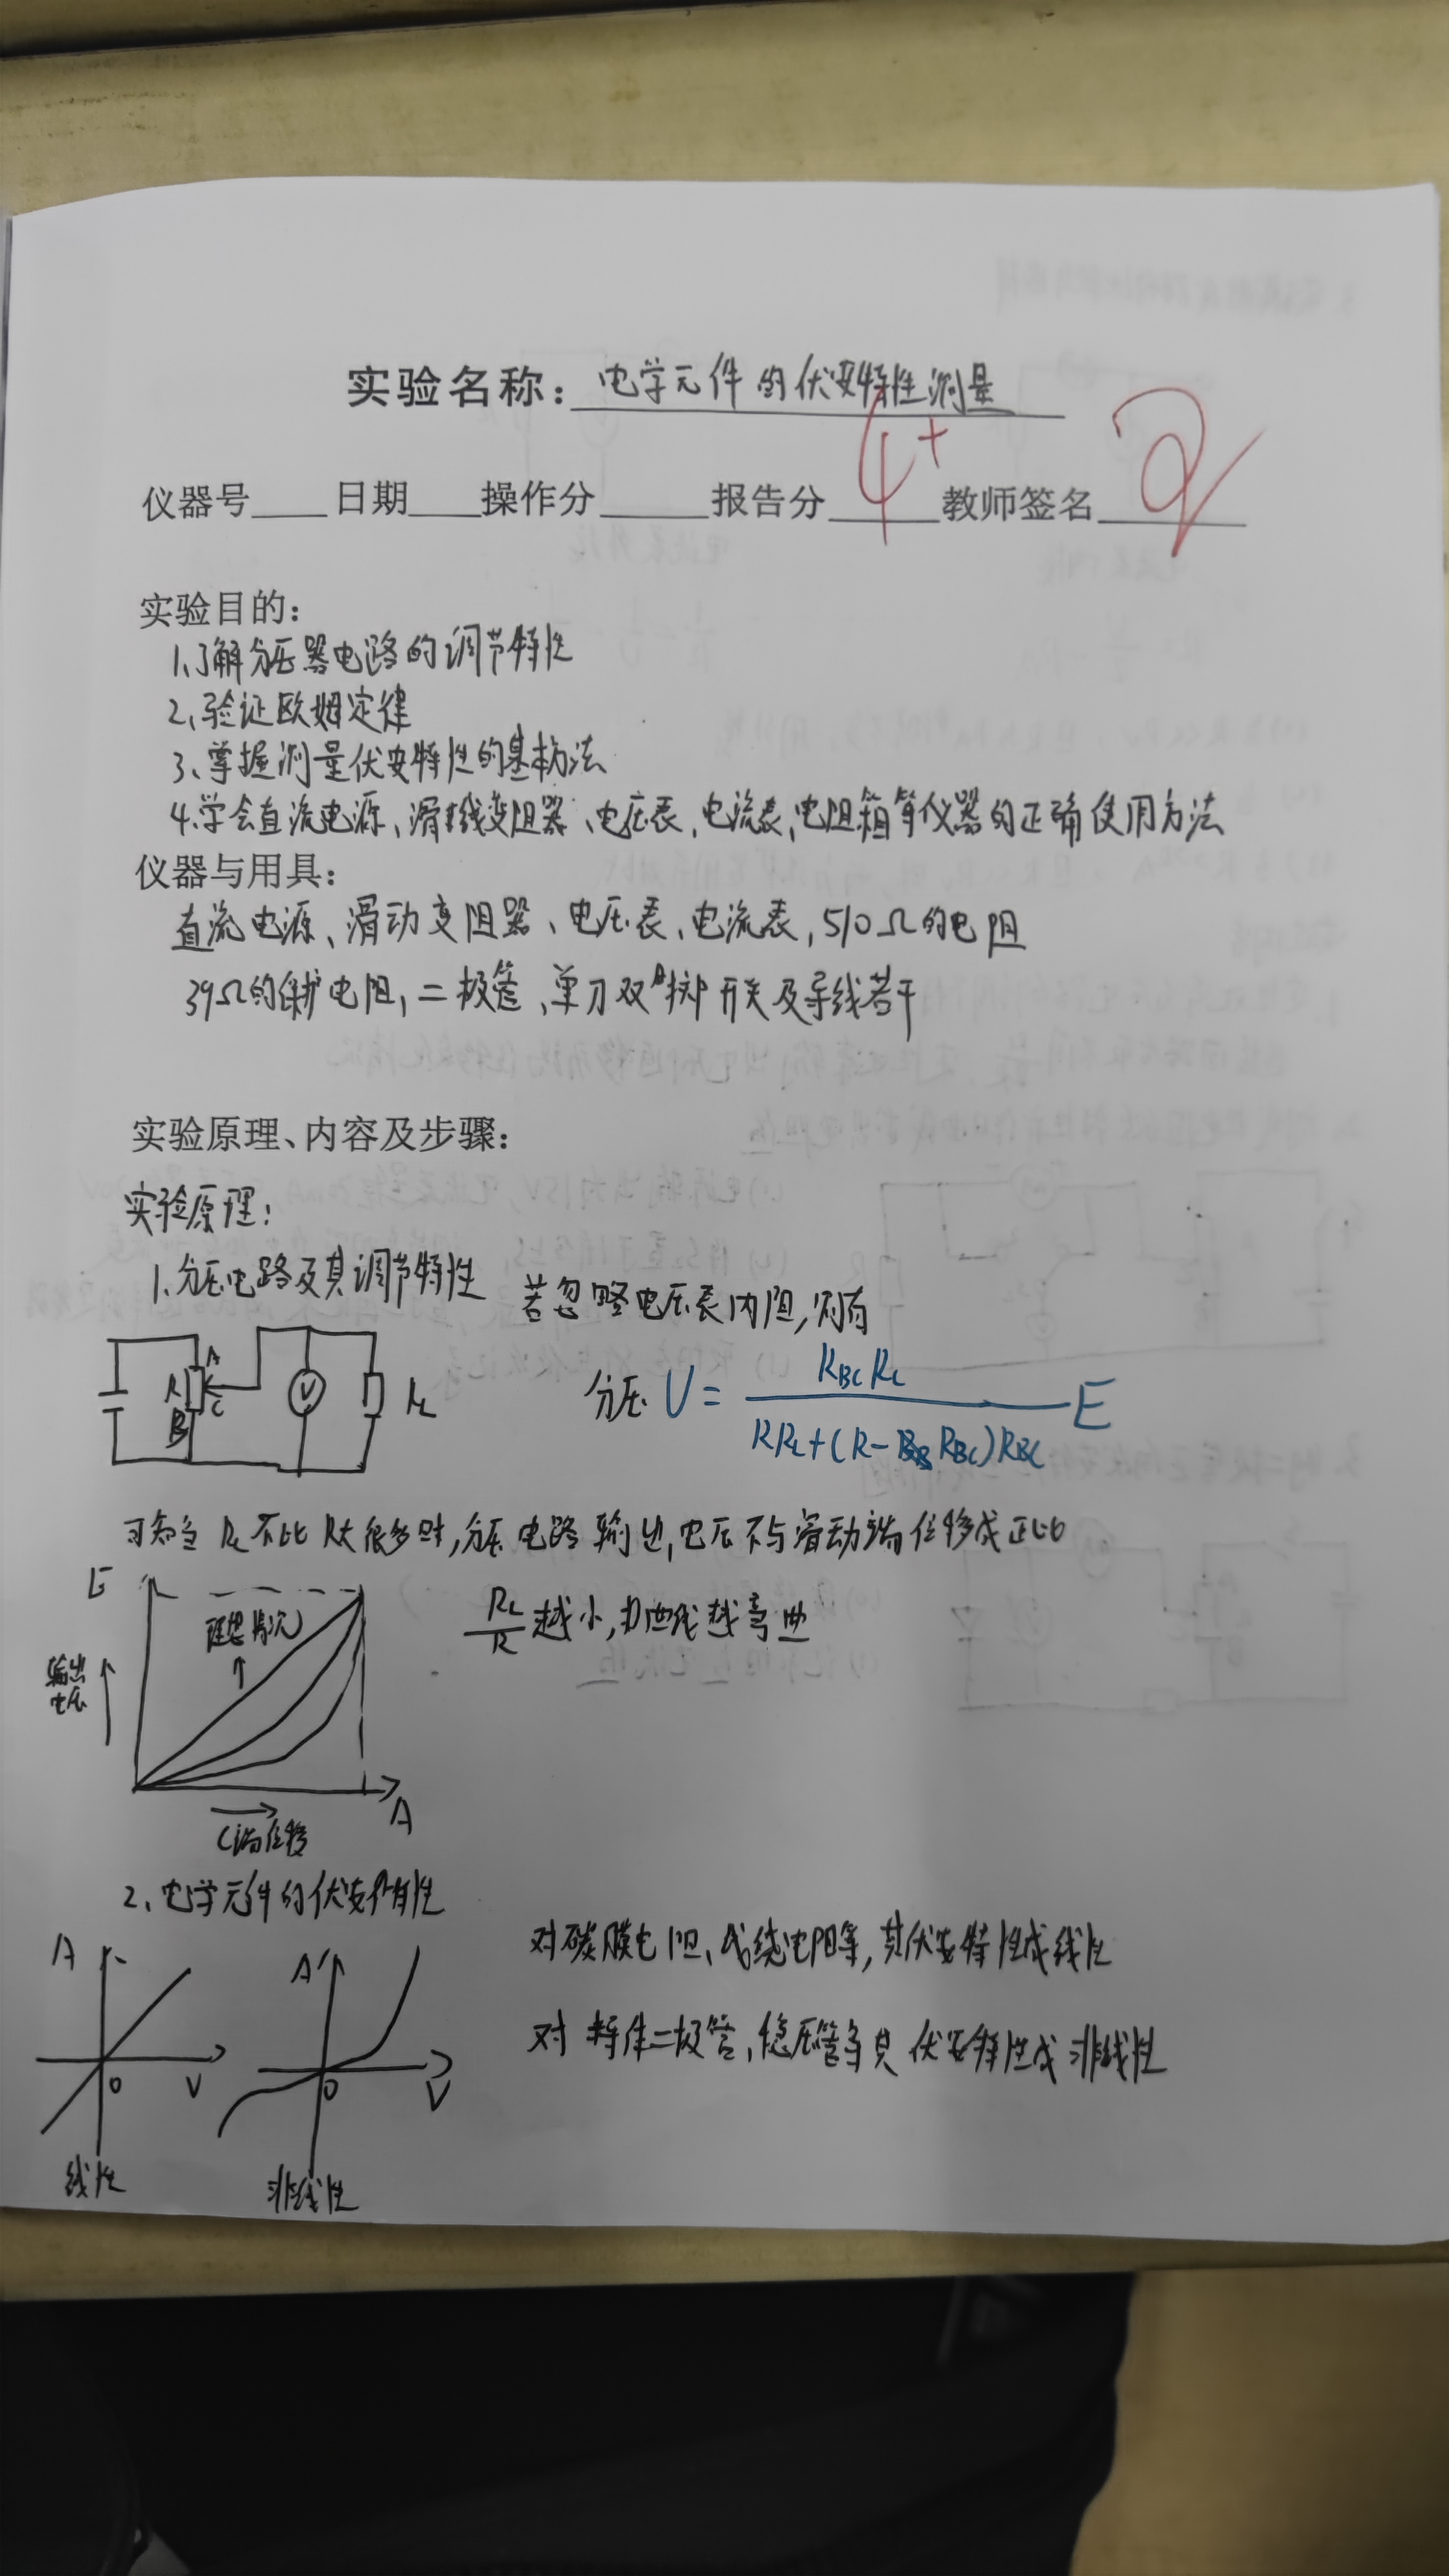 实验名称：电学元件的伏安特性测量
仪器号 日期 操作分 报告分 4+ 教师签名
实验目的：
1.了解分压器电路的调节特性
2、验证欧姆定律
3、掌握测量伏安特性的基本方法
4.学会直流电源、滑线变阻器、电压表、电流表、电阻箱等仪器的正确使用方法
仪器与用具：
直流电源、滑动变阻器、电压表、电流表，510Ω的电阻
39Ω的保护电阻，二极管、单刀双掷开关及导线若干
实验原理、内容及步骤：
实验原理：
1.分压电路及其调节特性
若忽略电压表内阻，则有
A
R
C
B
V
RL
分压 U = RBC RL / RRL+(R- RBC)RBC E
可知当 RL 不比 R大很多时，分压电路输出电压不与滑动端位移成正比
E
理想情况
输出
电压
RL/R 越小，曲线越弯曲
A
C端位移
2、电学元件的伏安特性
对碳膜电阻、线绕电阻等，其伏安特性成线性
A
0
V
线性
A
0
V
非线性
对 二极管，稳压管等其伏安特性成非线性